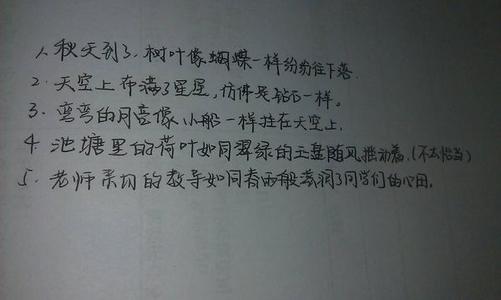 1、秋天到了,树叶像蝴蝶一样纷纷往下落.
2.天空上布满了星星,仿佛是钻石一样。
3.弯弯的月亮像小船一样挂在天空上.
4.池塘里的荷叶如同翠绿的玉盘随风摇动着.(不太恰当)
5.老师亲切的教导如同春雨般滋润了同学们的心田.